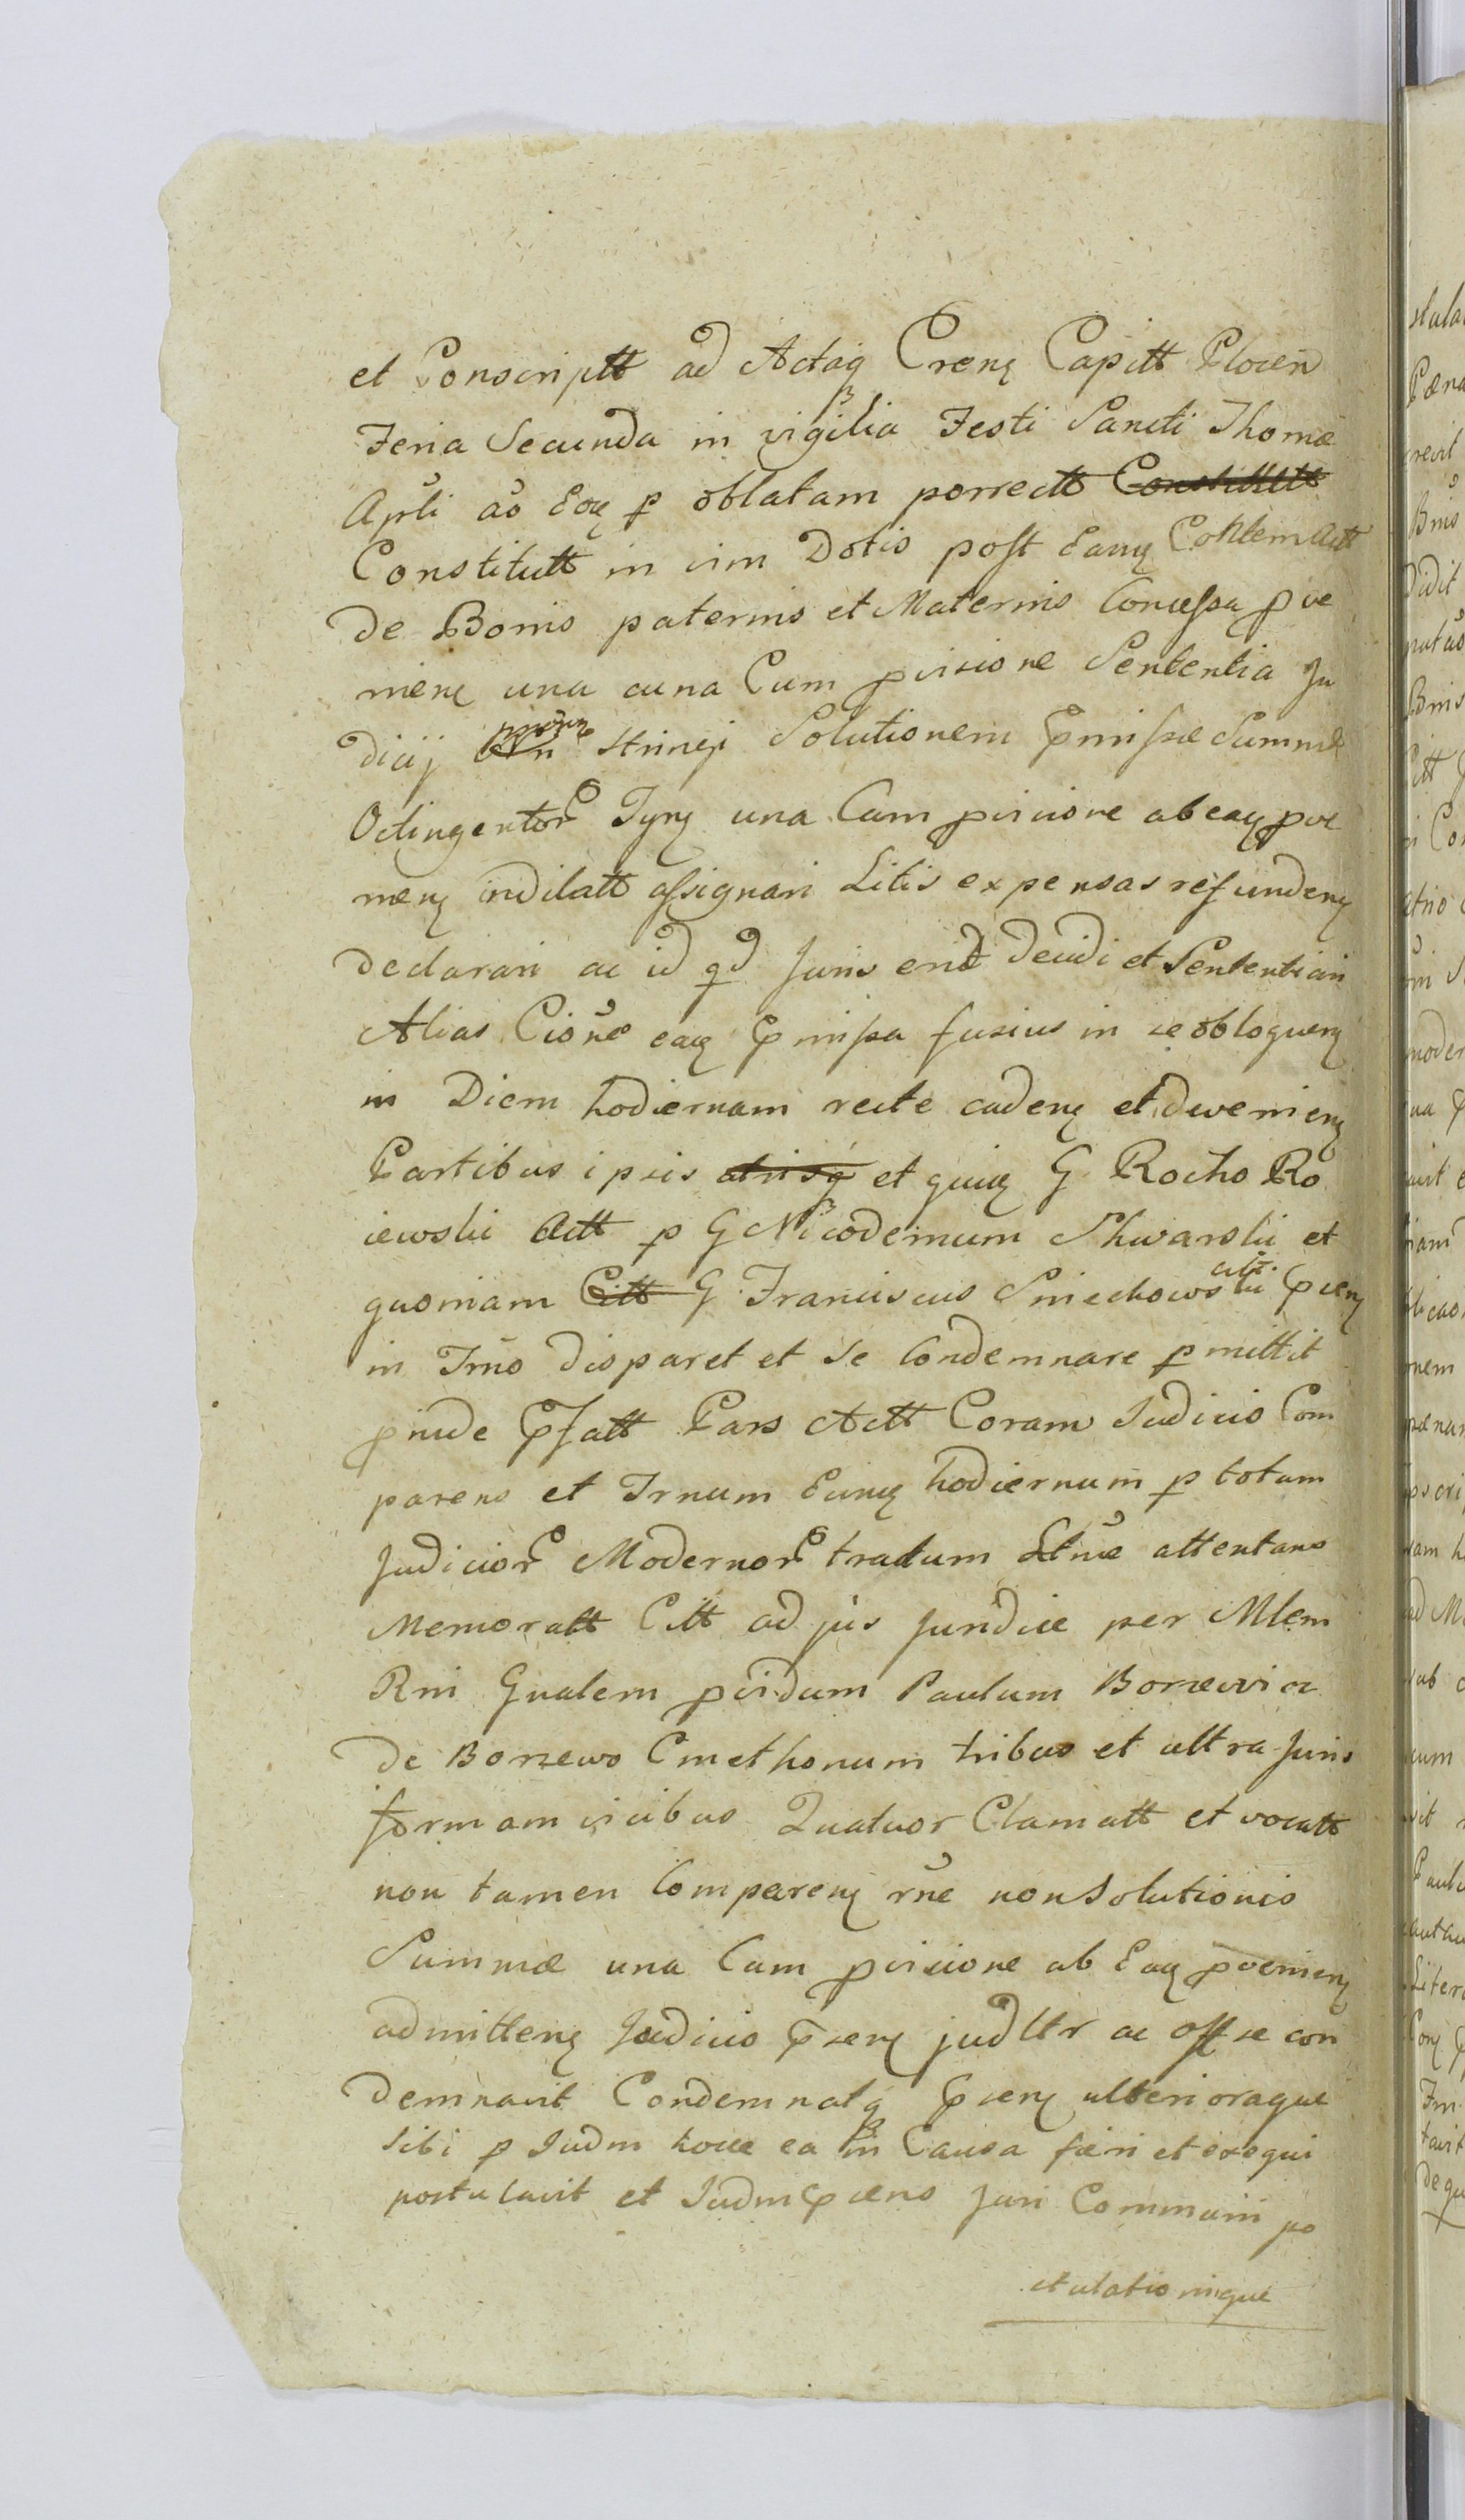 et Conscriptt ad Actaq Crenʒ Capitt Plocen
Feria Secunda in vigilia Festi Sancti Thomæ
Apli ao Eoʒ p oblatam porrectt Constitutt
Constitutt in vim Dotis post Eamʒ Cohtem Actt
de Bonis paternis et Maternis Concessa pve
nienʒ una cum Cum pvisione Sententia Ju
dicij stringi Solutionem pmissæ Summæ
Octingentor Tynʒ una Cum pvisione ab eaʒ pve
nienʒ indilatt assignari Litis expensas refundenʒ
declarari ac id qd Juris erit decidi et Sententiari
Alias Cione eaʒ pmissa fusius in se obloquenʒ
in Diem hodiernam recte cadenʒ et devenienʒ
Partibus ipsis utrisq et quiʒ G Rocho Ro
iewski Actt p G Nicodemum Skwarski et
quoniam Citt G Franciscus Sniechowski citt. psenʒ
in Trno disparet et se Condemnare pmittit
pinde pfatt Pars Actt Coram Judicio Com
parens et Trnum Eunʒ hodiernum p totum
Judicior Modernor tractum attentans
Memoratt Citt ad jus juridice per Mlem
Rni Gnalem pvidum Paulum Borzewicz
de Borzewo Cmethonum tribus et ultra Juris
formam vicibus Quatuor Clamatt et vocatt
non tamen Comparenʒ rne non Solutionis
Summæ una Cum pvisione ab Eaʒ pvenienʒ
admittenʒ Judicio psenʒ judltr ac off se con
demnavit Condemnatq psenʒ ulterioraque
sibi p Judm hocce ea in Causa fieri et exequi
postulavit et Judm psens Juri Communi po
stulationique